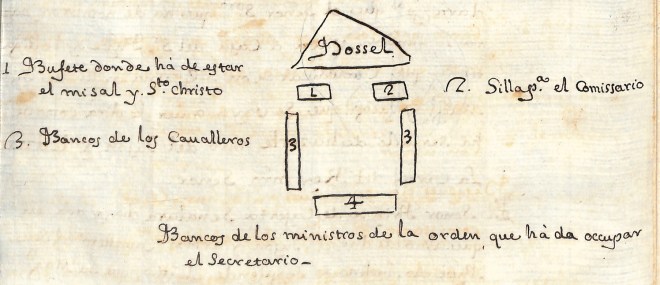 Dossel
1 Bufete donde há de estar
el misal y S.to Christo
1
2
2. Silla p.a el Comissario
3. Bancos de los Caualleros
3
3
4
Bancos de los ministros de la orden, que há da occupar
el Secretario-